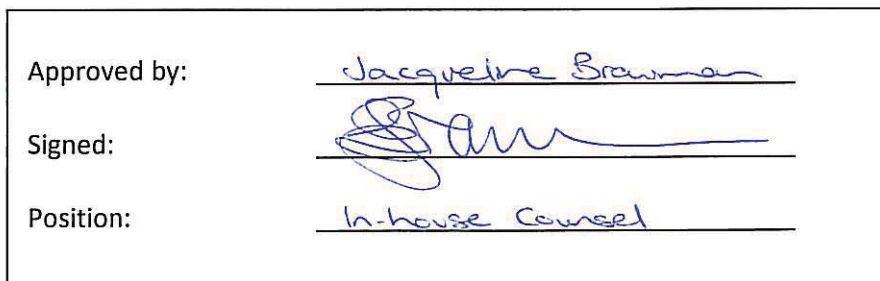 Approved by: Jacqueline
Signed:
Position: In-house Counsel